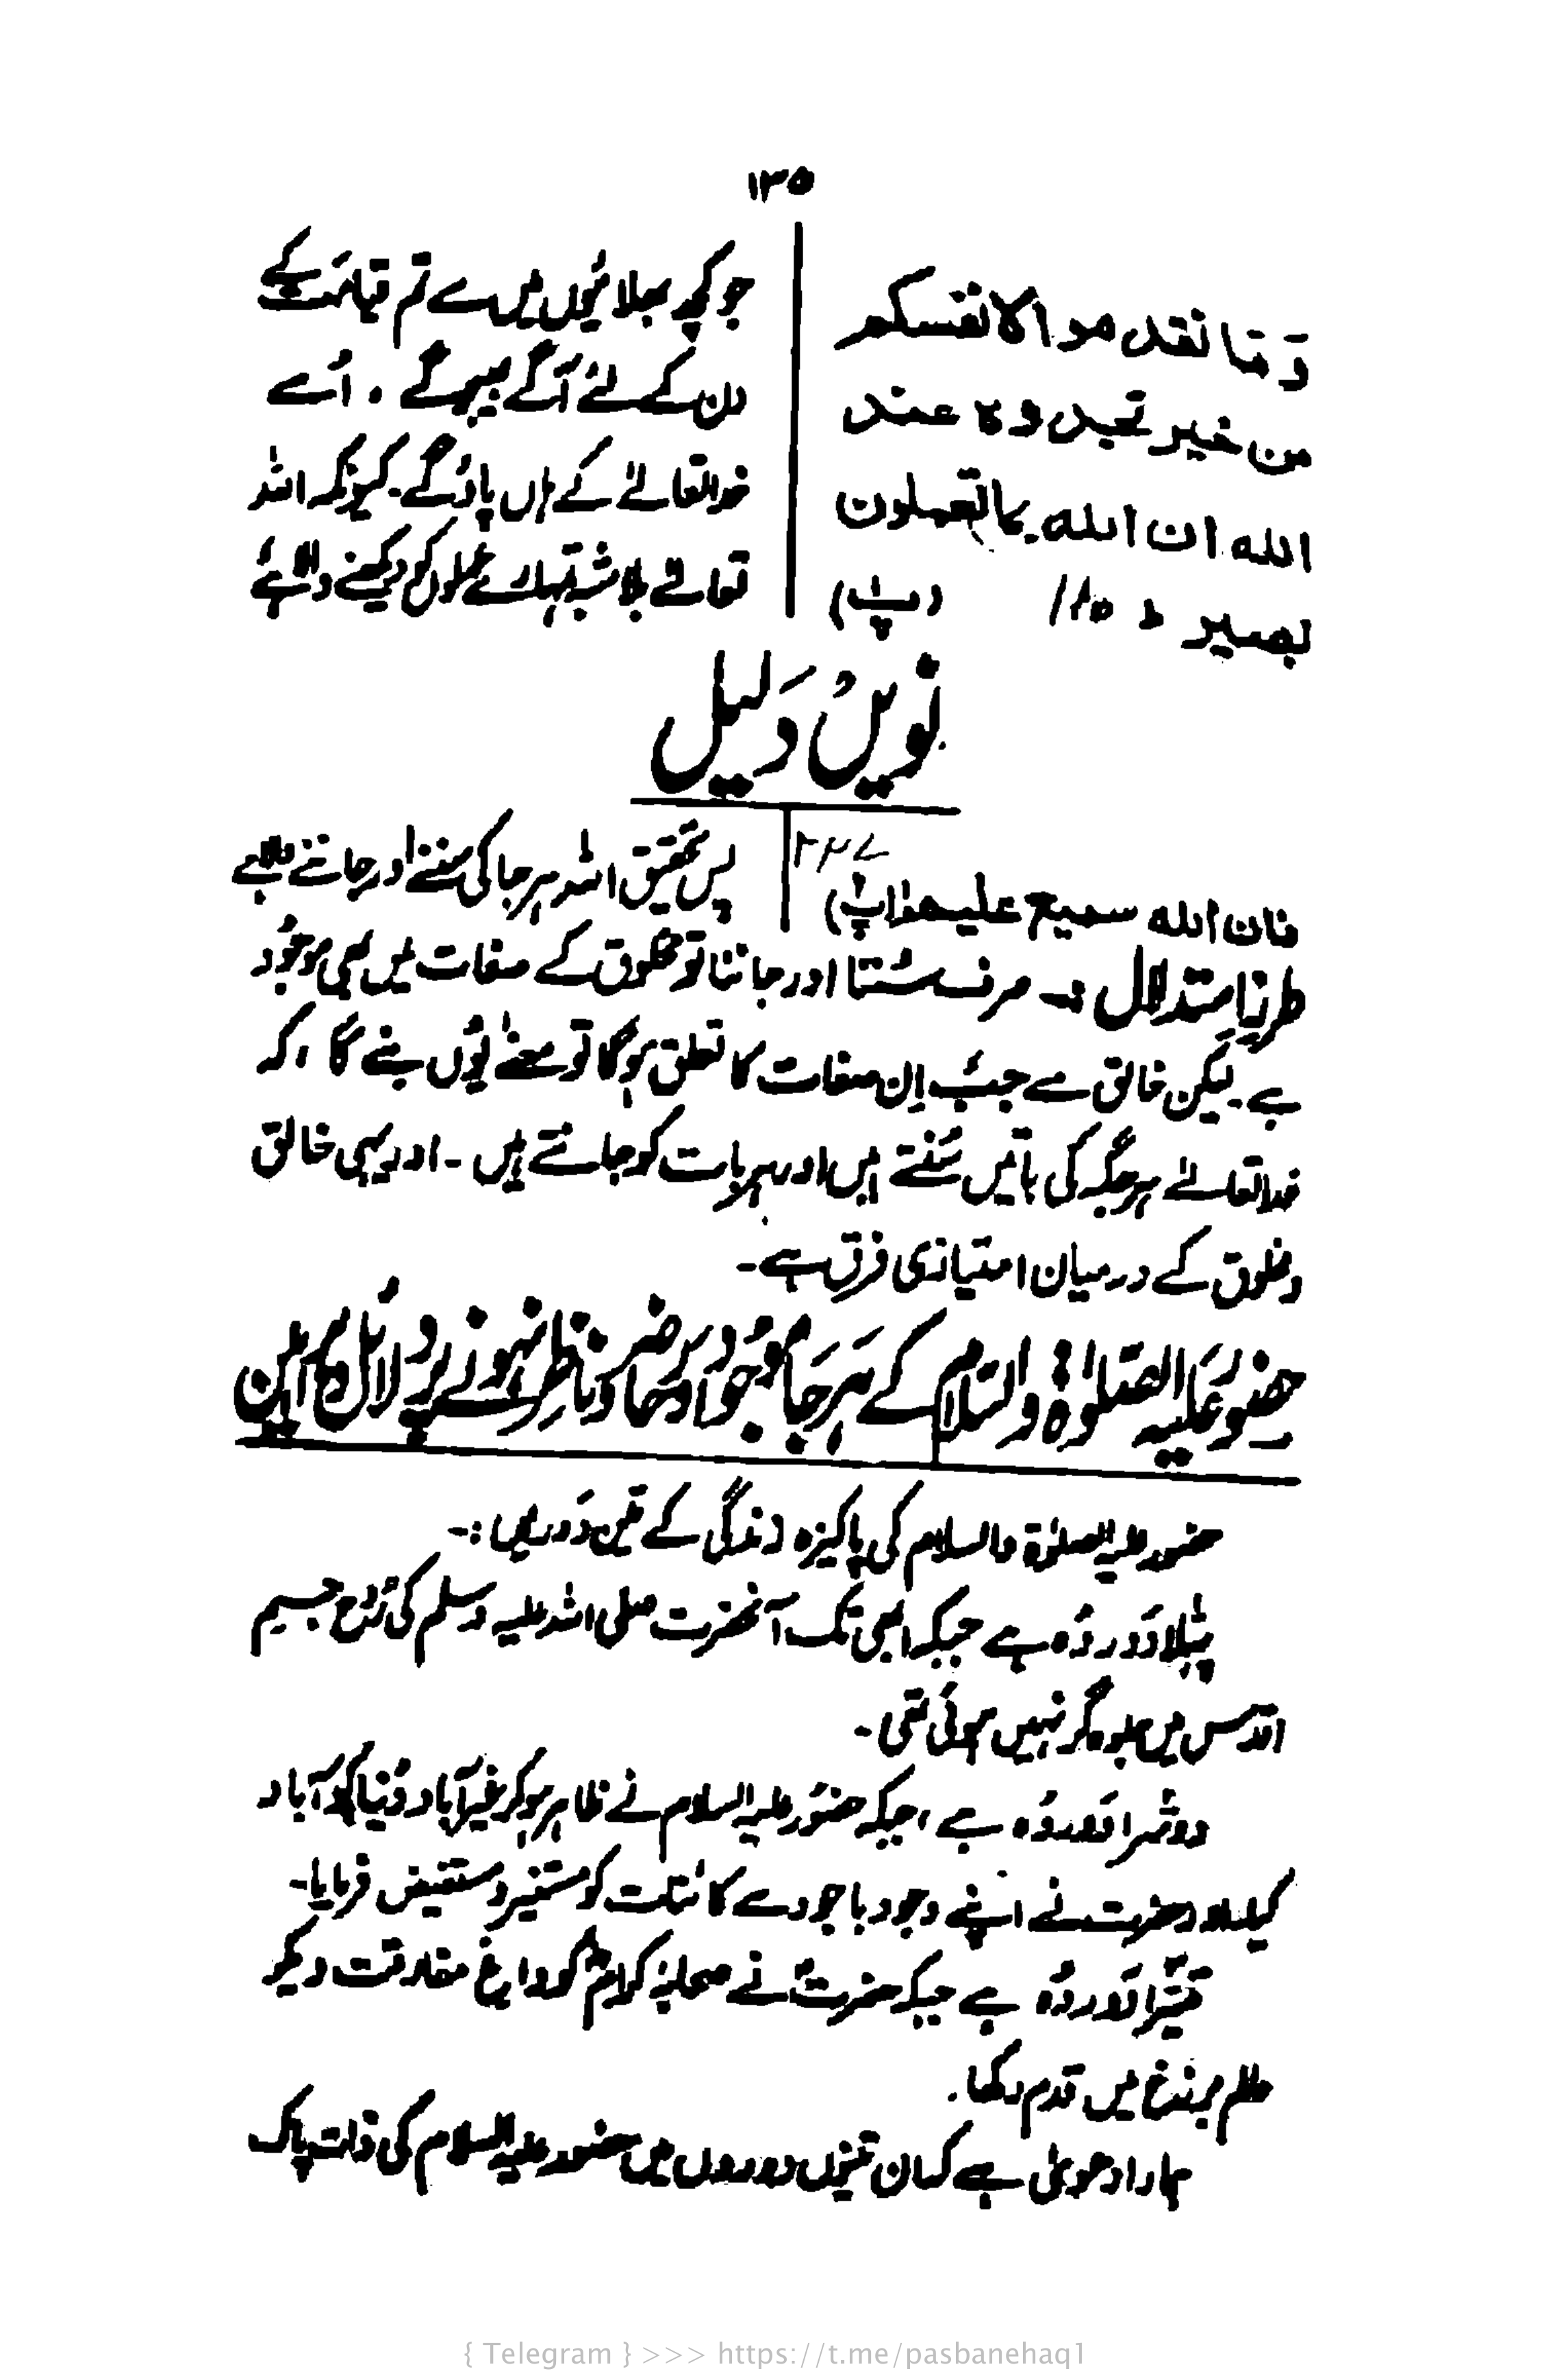 ۱۳۵
وَمَا تقدموا لانفسكم
من خير تجدوه عند
الله ان الله بما تعملون
بصير ۵ /۱۱۵ (پ۱)
جو کچھ بھلائیوں میں سے تم قیامت کے
دن کے لئے آگے بھیجو گے ، اُسے
خدا تعالےٰ کے ہاں پاؤ گے۔ کیونکہ اللہ
تعالےٰ بلا شبہ تمہارے عملوں کو دیکھنے والا ہے
نویں دَلیل
۲۲۷
فان الله سميع عليم (پ۲)
پس تحقیق اللہ ہر جا کی سننے اور جاننے والا ہے
طرزِ استدلال :۔ صرف سُننا اور جاننا تو مخلوق کے صفات میں بھی موجُود
ہے۔ لیکن خالق سے جب اِن صفات کا تعلق ہو گا تو معنےٰ یُوں بنے گا ، کہ
خدا تعالےٰ ہر جگہ کی باتیں سُنتے ہیں اور ہر بات کو جانتے ہیں ۔ اور یہی خالق
و مخلوق کے درمیان امتیازی فرق ہے۔
حضُور عَلیہ الصّلوٰۃ والسّلام کے ہَر جَا موجُود اور حَاضر و نَاظر نہ ہونے پر دلائل و براہین
حضور علیہ الصلوٰۃ والسلام کی پاکیزہ زندگی کے تین دَور ہیں :۔
پہلا دَور وُہ ہے جبکہ ابھی تک آنحضرت صلی اللہ علیہ وسلم کی رُوح جسم
اقدس میں جلوہ گر نہیں ہوئی تھی ۔
دوسرا دَور وُہ ہے ، جبکہ حضُور علیہ السلام نے ظاہر ہو کر غیر آباد دُنیا کو آباد
کیا اور حضرت نے اپنے وجود باجود سے کائنات کو مستنیر و مستفیض فرمایا۔
تیسرا دَور وُہ ہے جبکہ حضرتؐ نے صحابہ کرامؓ کو داغِ مفارقت دیکر
عالم برزخ میں قدم رکھا۔
ہمارا دعویٰ ہے کہ ان تینوں دوروں میں حضور علیہ السلام کی ذات پاک
{ Telegram } >>> https://t.me/pasbanehaq1